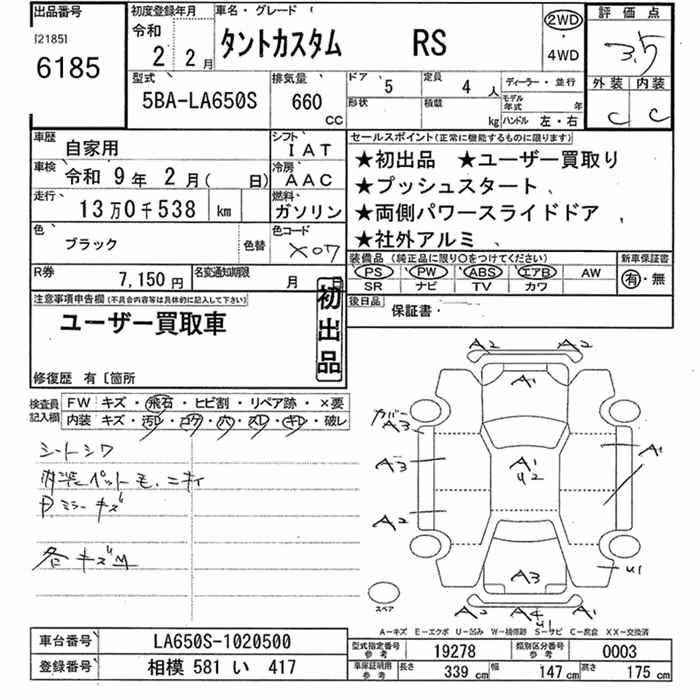 出品番号
[2185]
6185
初度登録年月
令和
2 2月
車名・グレード
タントカスタム RS
2WD
・
4WD
評価点
3.5
外装 内装
C C
型式
5BA-LA650S
排気量
660
CC
ドア 5
形状
定員 4人
積載 kg
ディーラー・並行
モデル年式 年
ハンドル 左・右
車歴 自家用
シフト IAT
車検 令和 9年 2月( 日)
冷房 AAC
走行 13万0千538 km
燃料 ガソリン
色 ブラック 色替
色コード X07
R券 7,150円
名変通知期限 月
セールスポイント(正常に機能するものに限ります)
★初出品 ★ユーザー買取り
★プッシュスタート、
★両側パワースライドドア 、
★社外アルミ 、
装備品(純正品に限り○をつけてください)
PS PW ABS エアB AW
SR ナビ TV カワ
新車保証書
有・無
後日品
保証書・
注意事項申告欄(不具合内容等は具体的に記入して下さい)
ユーザー買取車
初出品
修復歴 有〔箇所
検査員記入欄
FW キズ・飛石・ヒビ割・リペア跡・×要
内装 キズ・汚レ・コゲ・穴・スレ・キレ・破レ
シートシワ
内装ペット毛、ニオイ
ミラーキズ
各キズ
A2 A2
A1
カバー
A3
A3
A1
U2
A1
A2
A3
U1
A2 A4 A2
U1
スペア
A-キズ E-エクボ U-凹み W-補修跡 S-サビ C-腐食 XX-交換済
車台番号 LA650S-1020500
登録番号 相模 581 い 417
型式指定番号 参考 19278
類別区分番号 参考 0003
車庫証明用 参考 長さ 339 cm 幅 147 cm 高さ 175 cm